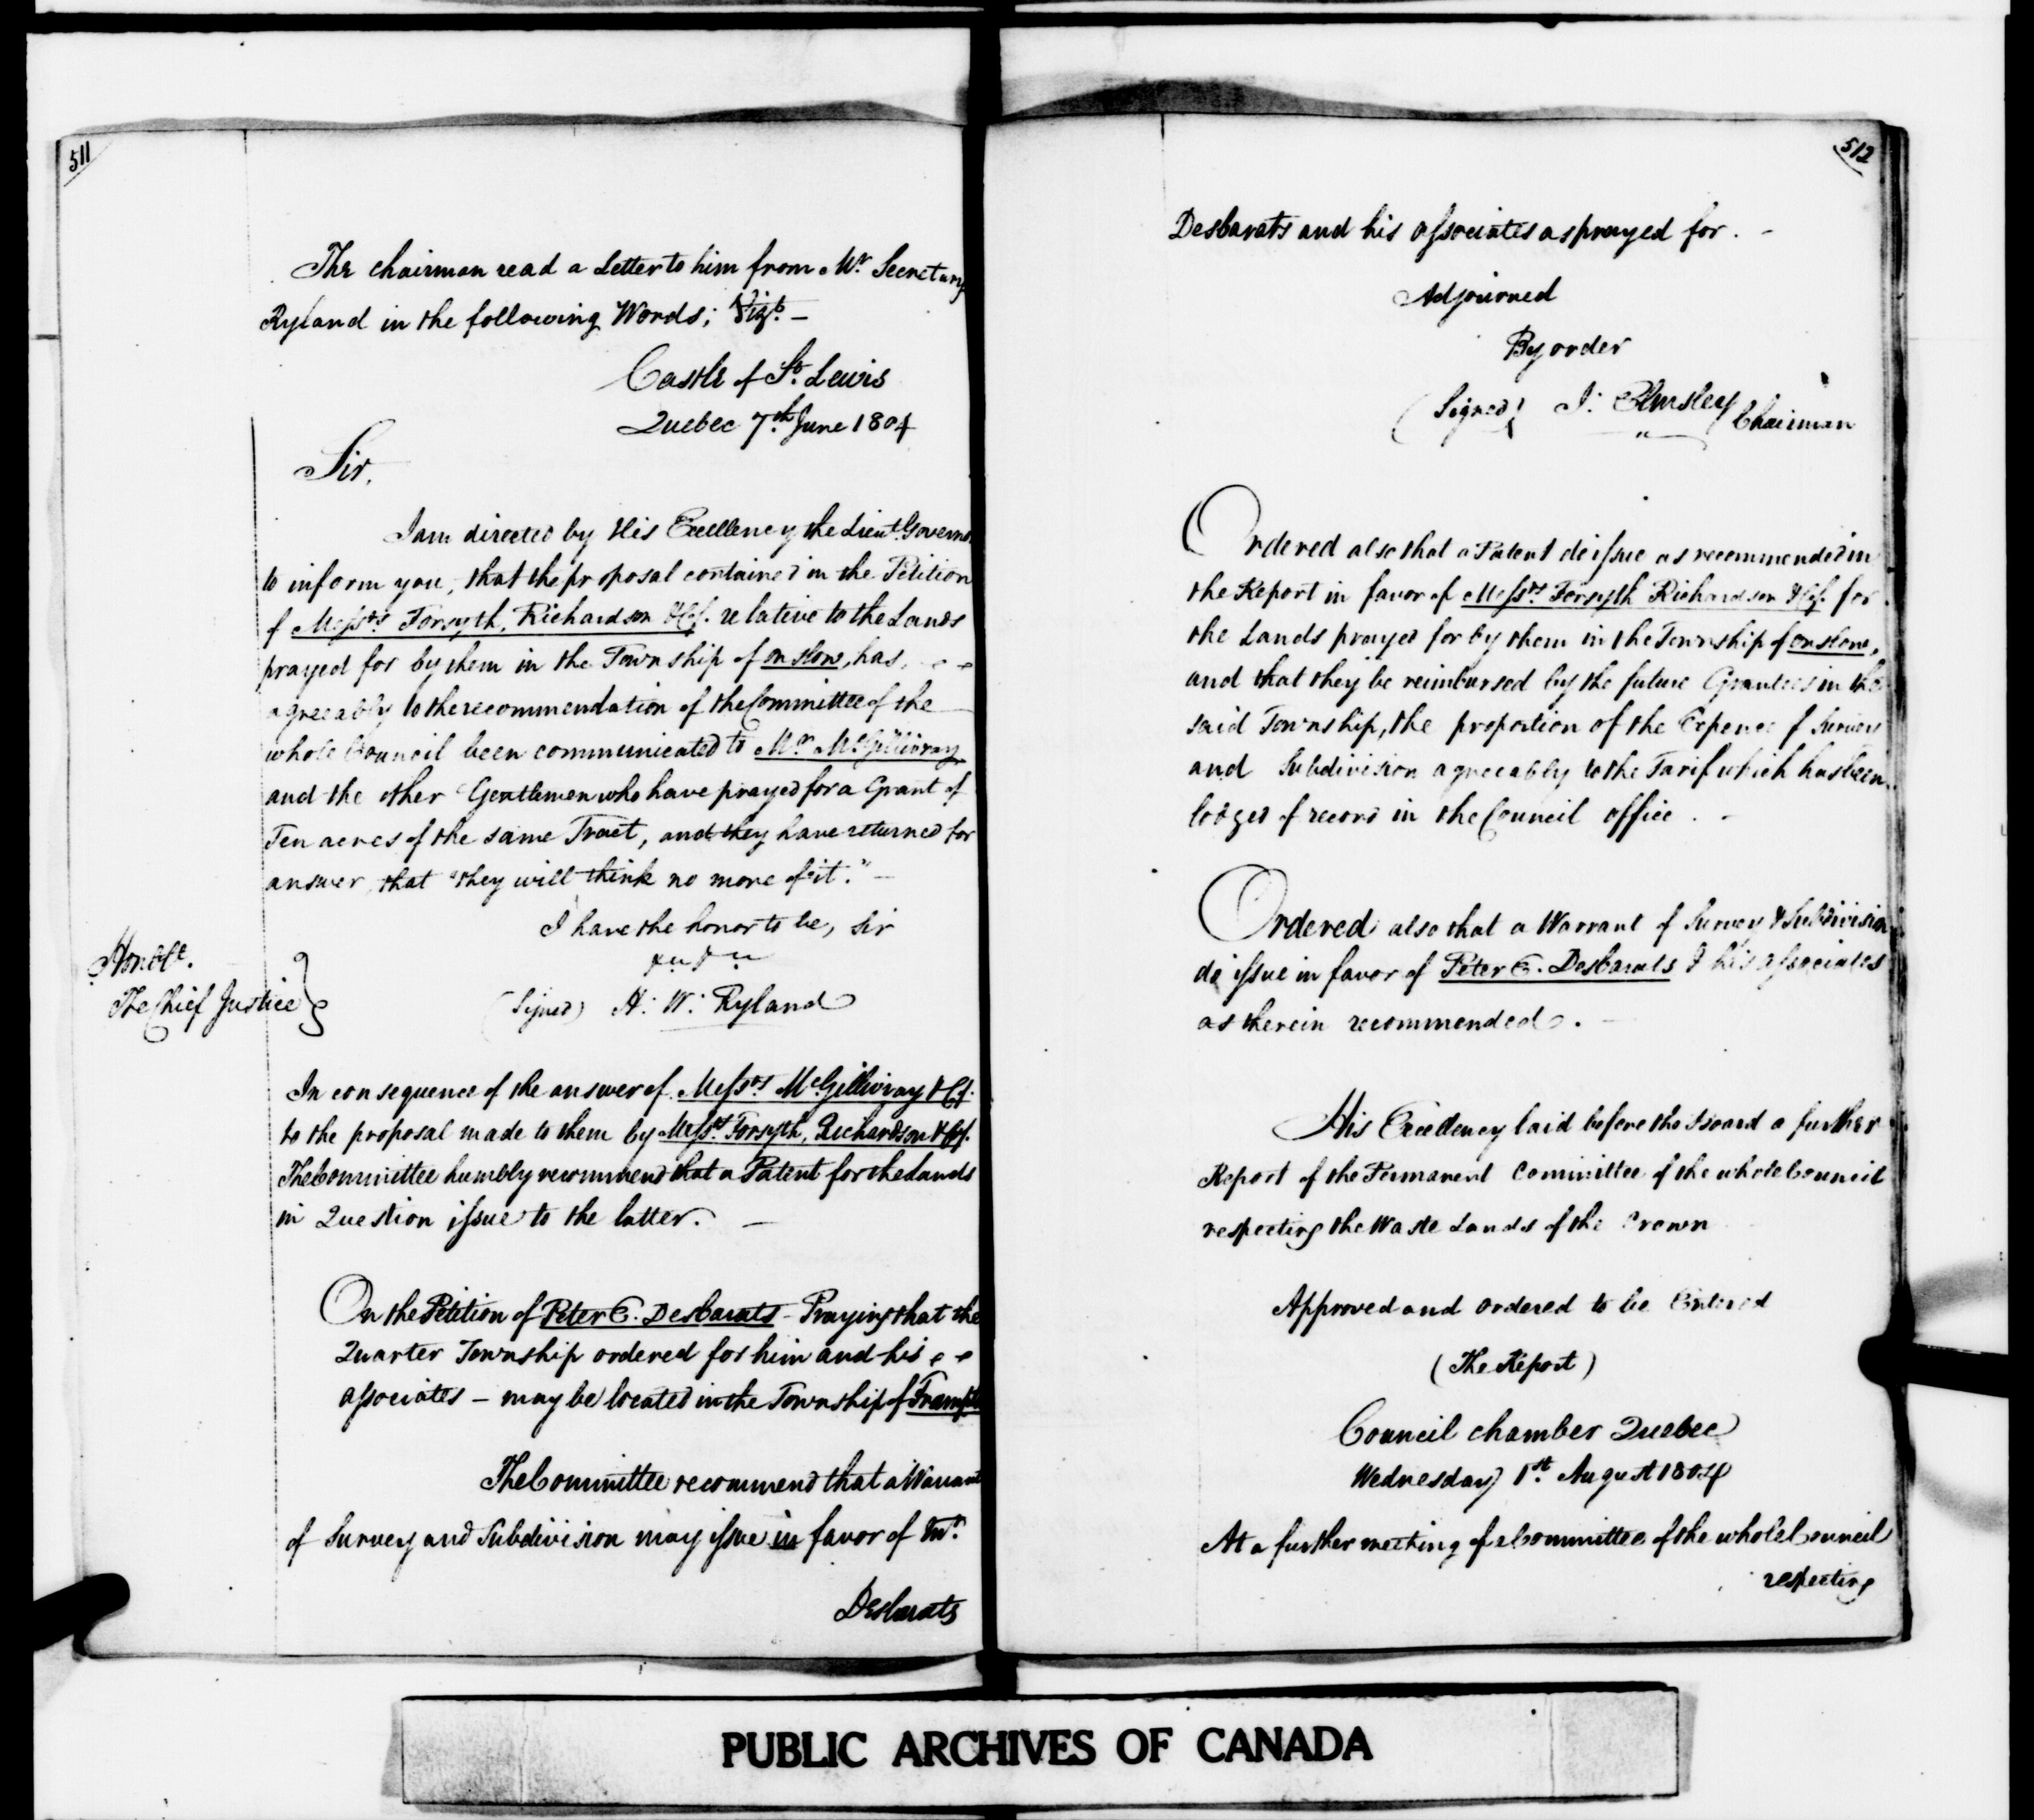 511
The chairman read a Letter to him from Mr. Secretary
Ryland in the following Words; Vizt. —
Castle of St. Lewis
Quebec 7th June 1804
Sir,
I am directed by His Excellency the Lieut. Governo
to inform you, that the proposal contained in the Petition
of Messrs. Forsyth, Richardson & Co. relative to the Lands
prayed for by them in the Township of Onslow, has, - -
agreeably to the recommendation of the Committee of the
whole Council been communicated to Mr. McGillivray
and the other Gentlemen who have prayed for a Grant of
Ten acres of the same Tract, and they have returned for
answer, that "they will think no more of it." —
I have the honor to be, Sir
&c &c
Honble.
The Chief Justice }
(Signed) H: W: Ryland
In consequence of the answer of Messrs McGillivray & Co.
to the proposal made to them by Messrs. Forsyth, Richardson & Co.
The Committee humbly recommend that a Patent for the Lands
in Question issue to the latter. —
On the Petition of Peter E. Desbarats - Praying that the
Quarter Township ordered for him and his - -
associates — may be located in the Township of Frampto
The Committee recommend that a Warrant
of Survey and Subdivision may issue in favor of Mr.
Desbarats
512
Desbarats and his associates as prayed for. -
Adjourned
By order
(Signed) J: Elmsley Chairman
Ordered also that a Patent do issue as recommended in
the Report in favor of Messrs. Forsyth Richardson & Co. for
the Lands prayed for by them in the Township of Onslow,
and that they be reimbursed by the future Grantees in the
said Township, the proportion of the Expence of Survey
and Subdivision agreeably to the Tarif which has been
lodged of record in the Council office . -
Ordered also that a Warrant of Survey & Subdivision
do issue in favor of Peter E. Desbarats & his associates
as therein recommended. —
His Excellency laid before the Board a further
Report of the Permanent Committee of the whole Council
respecting the Waste Lands of the Crown
Approved and ordered to be Entered
(The Report)
Council chamber Quebec
Wednesday 1st. August 1804
At a further meeting of a Committee of the whole Council
respecting
PUBLIC ARCHIVES OF CANADA